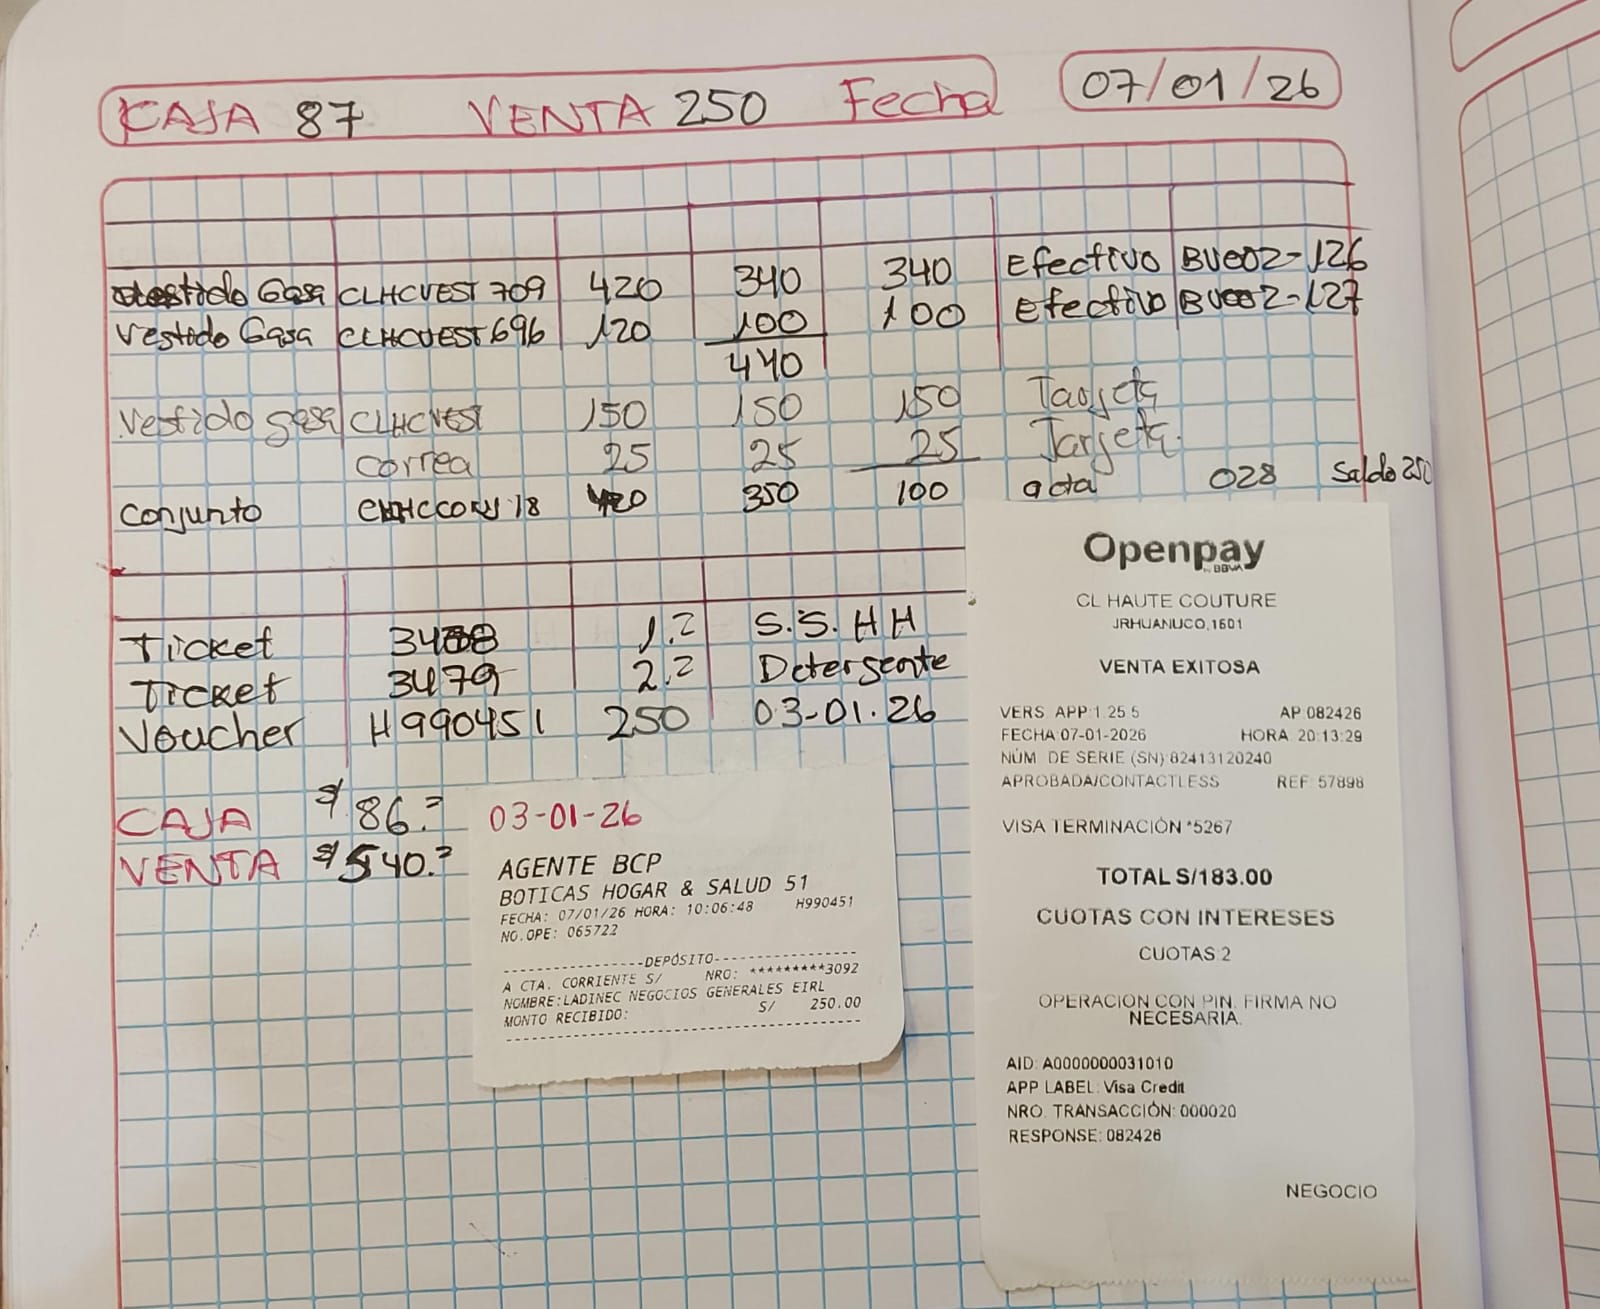 CAJA 87 VENTA 250 Fecha 07/01/26
Vestido Gasa CLHCVEST 709 420 340 340 Efectivo BVE02-126
Vestido Gasa CLHCVEST 696 120 100 100 Efectivo BVE02-127
440
Vestido gasa CLHCVEST 150 150 150 Tarjeta
correa 25 25 25 Tarjeta.
Conjunto CLHCCONJ 18 420 350 100 acta 028 Saldo 250
Ticket 3478 1.2 S.S. HH
Ticket 3479 2.2 Detergente
Voucher H990451 250 03-01.26
CAJA 86.
VENTA 540.
03-01-26
AGENTE BCP
BOTICAS HOGAR & SALUD 51
FECHA: 07/01/26 HORA: 10:06:48 H990451
NO.OPE: 065722
-----------------DEPÓSITO-----------------
A CTA. CORRIENTE S/ NRO: *********3092
NOMBRE:LADINEC NEGOCIOS GENERALES EIRL
MONTO RECIBIDO: S/ 250.00
Openpay
by BBVA
CL HAUTE COUTURE
JRHUANUCO,1601
VENTA EXITOSA
VERS. APP:1.25.5 AP:082426
FECHA:07-01-2026 HORA: 20:13:29
NÚM. DE SERIE (SN):82413120240
APROBADA/CONTACTLESS REF: 57898
VISA TERMINACIÓN *5267
TOTAL S/183.00
CUOTAS CON INTERESES
CUOTAS:2
OPERACION CON PIN. FIRMA NO
NECESARIA.
AID: A0000000031010
APP LABEL: Visa Credit
NRO. TRANSACCIÓN: 000020
RESPONSE: 082426
NEGOCIO